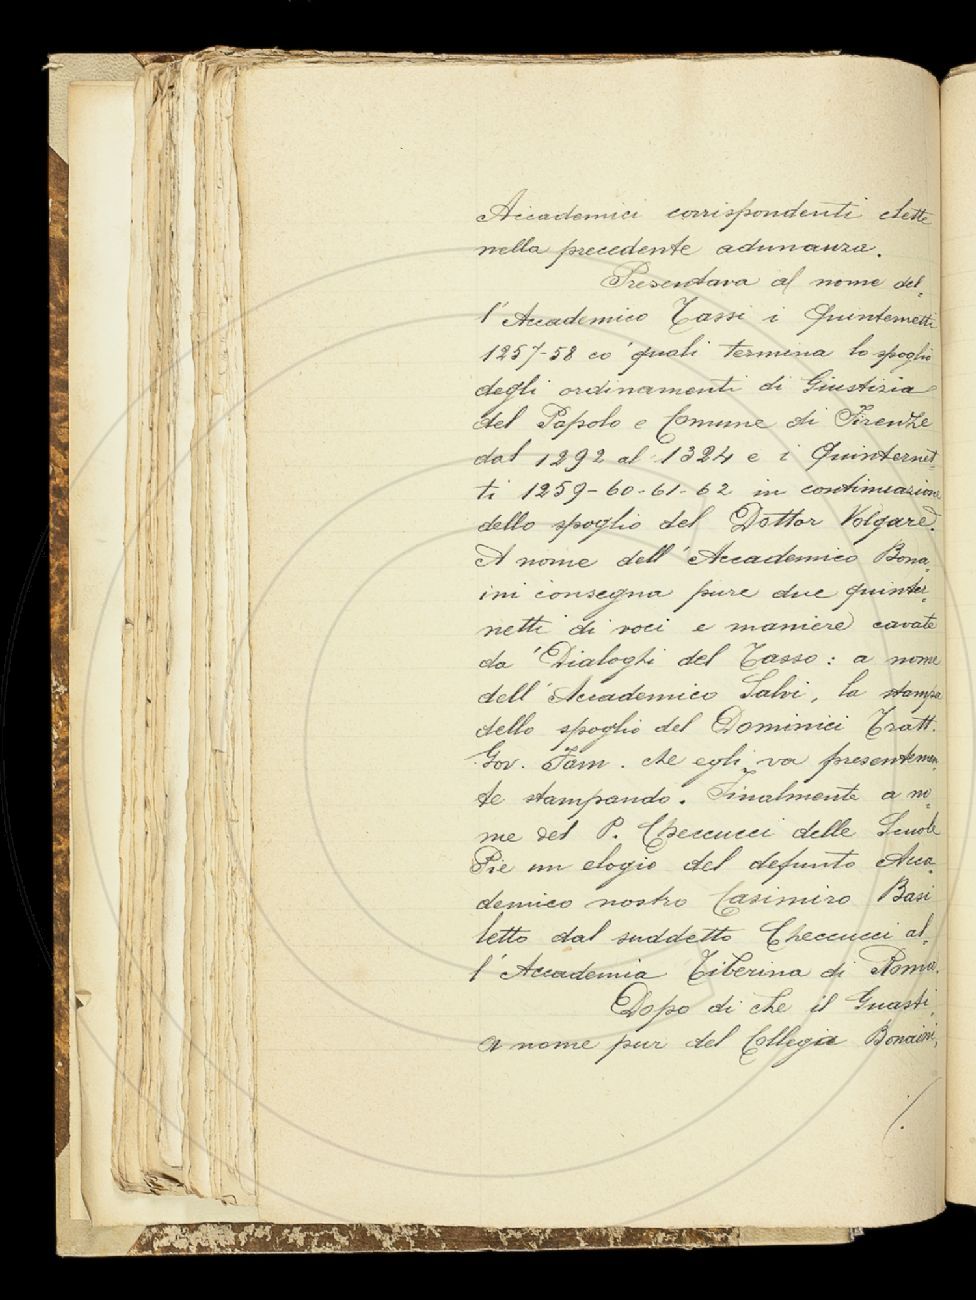 Accademici corrispondenti elette
nella precedente adunanza.
Presentava al nome del-
l'Accademico Tassi i Quinternetti
1257-58 co' quali termina lo spoglio
degli ordinamenti di Giustizia
del Popolo e Comune di Firenze
dal 1292 al 1324 e i Quinternet-
ti 1259-60-61-62 in continuazione
dello spoglio del Dottor Volgare.
A nome dell'Accademico Bona-
ini consegna pure due quinter-
netti di voci e maniere cavate
da' Dialoghi del Tasso: a nome
dell'Accademico Salvi, la stampa
dello spoglio del Dominici Tratt.
Gov. Fam. che egli va presentemen-
te stampando. Finalmente a no-
me del P. Checcucci delle Scuole
Pie un elogio del defunto Acca-
demico nostro Casimiro Basi
letto dal suddetto Checcucci al-
l'Accademia Tiberina di Roma.
Dopo di che il Guasti,
a nome pur del Collega Bonaini,
./.